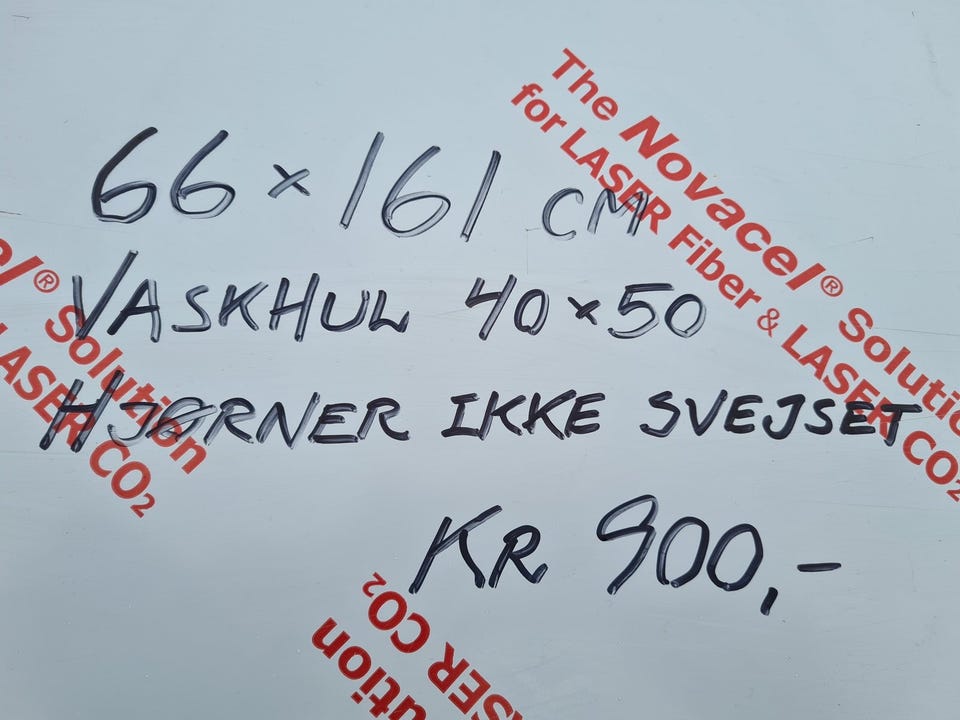 The Novacel® Solution
for LASER Fiber & LASER CO2
66 x 161 CM
VASKHUL 40 x 50
HJØRNER IKKE SVEJSET
KR 900,-
el® Solution
LASER CO2
LASER CO2
ution